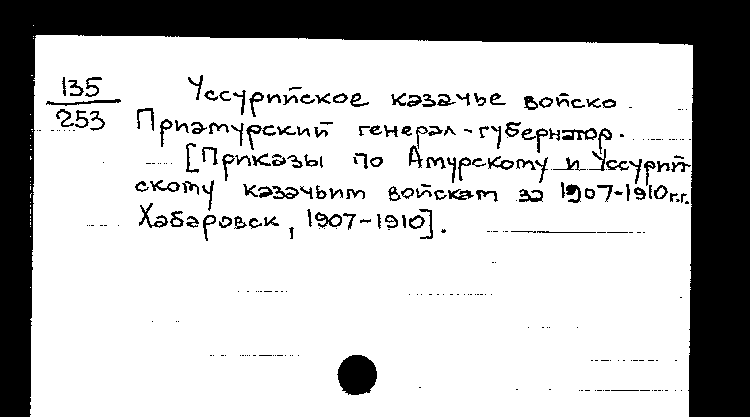 135
253
Уссурийское казачье войско.
Приамурский генерал-губернатор.
[Приказы по Амурскому и Уссурий
скому казачьим войскам за 1907-1910г.г.
Хабаровск, 1907-1910].